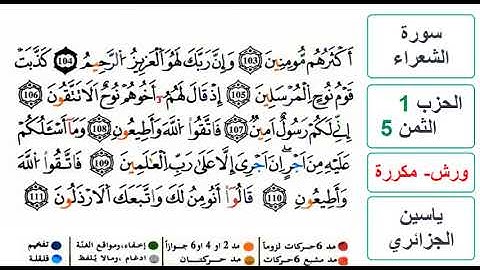 أَكْثَرُهُم مُّومِنِينَ 103 وَإِنَّ رَبَّكَ لَهُوَ اَلْعَزِيزُ اُلرَّحِيمُ 104 كَذَّبَتْ
قَوْمُ نُوحٍ اِلْمُرْسَلِينَ 105 إِذْ قَالَ لَهُمُۥٓ أَخُوهُمْ نُوحٌ اَلَا تَتَّقُونَ 106
إِنِّے لَكُمْ رَسُولٌ اَمِينٌ 107 فَاتَّقُواْ اُللَّهَ وَأَطِيعُونِ 108 وَمَآ أَسْـَٔلُكُمْ
عَلَيْهِ مِنَ اَجْرٍ اِنَ اَجْرِيَ إِلَّا عَلَىٰ رَبِّ اِلْعَٰلَمِينَ 109 فَاتَّقُواْ اُللَّهَ
وَأَطِيعُونِ 110 قَالُوٓاْ أَنُومِنُ لَكَ وَاتَّبَعَكَ اَلَارْذَلُونَ 111
سورة
الشعراء
الحزب 1
الثمن 5
ورش- مكررة
ياسين
الجزائري
مد 6 حركات لزوماً مد 2 او 4 او 6 جوازاً إخفاء، ومواقع الغنة تفخيم
مد مشبع 6 حركات مد حركتان ادغام ، ومالا يُلفظ قلقلة